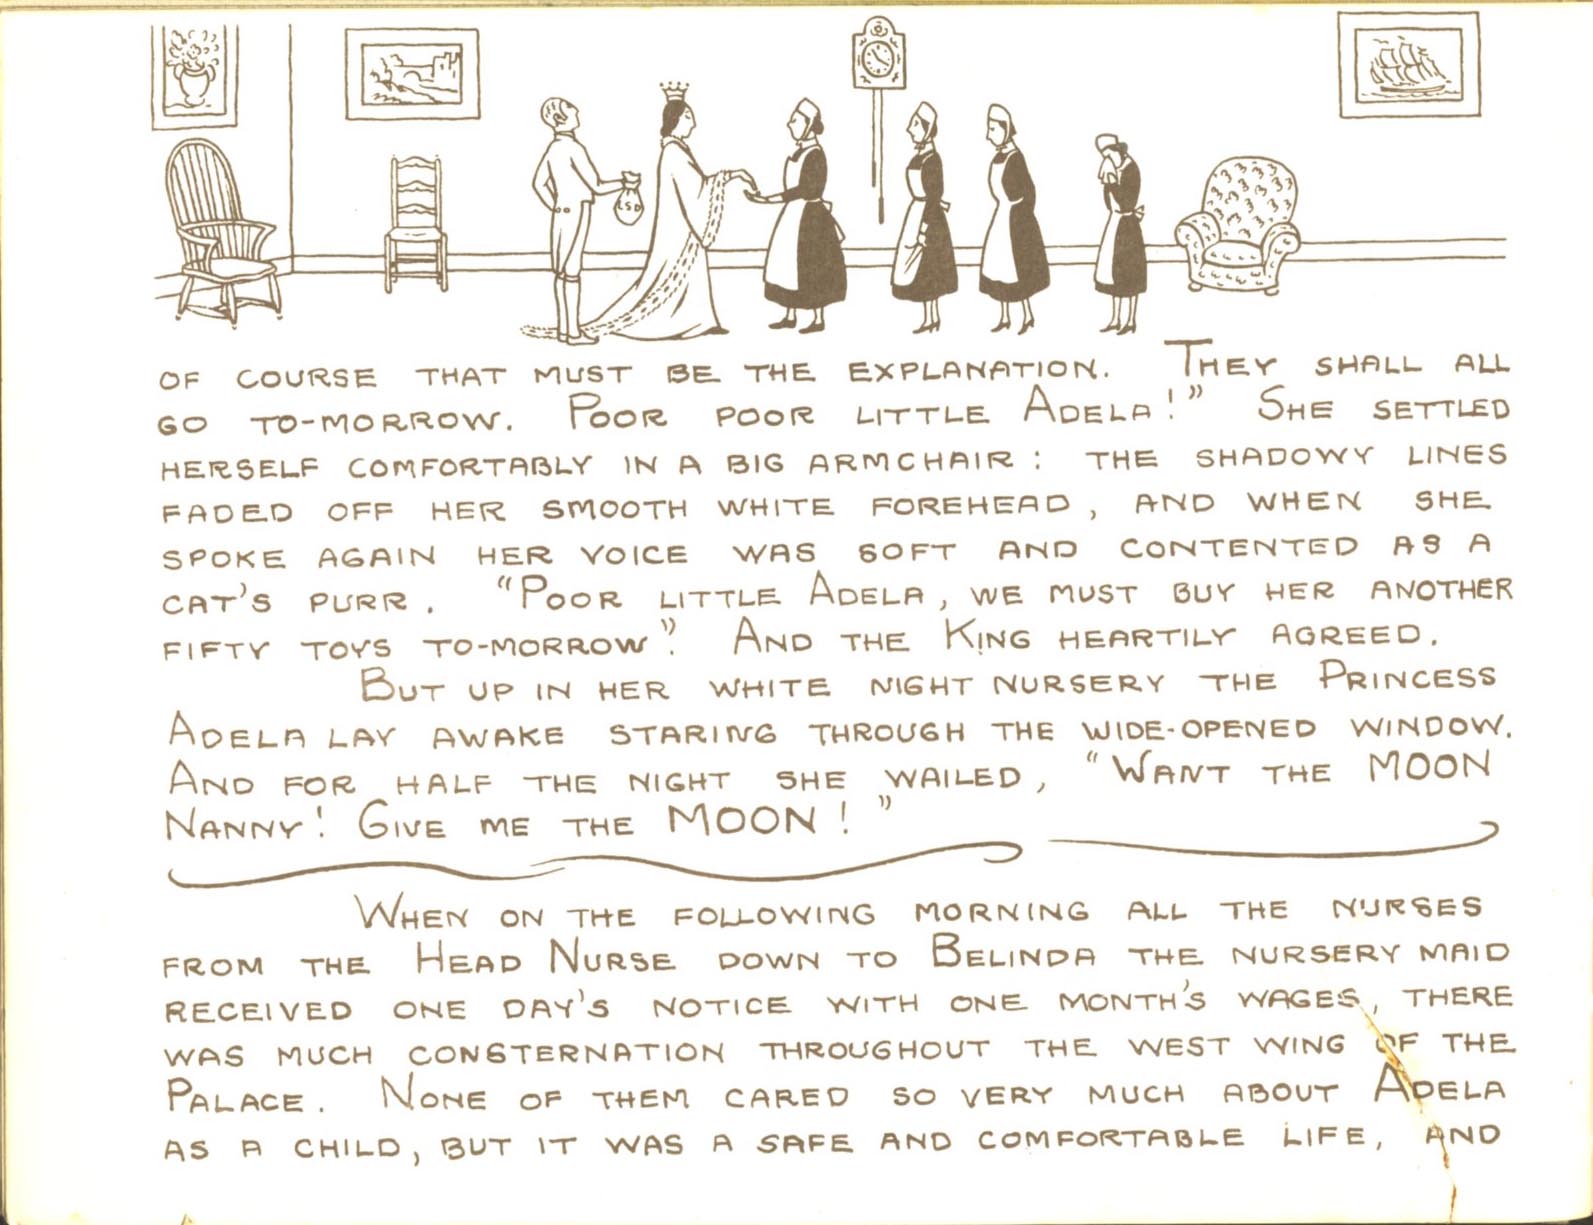 LSD
OF COURSE THAT MUST BE THE EXPLANATION. THEY SHALL ALL
GO TO-MORROW. POOR POOR LITTLE ADELA!" SHE SETTLED
HERSELF COMFORTABLY IN A BIG ARMCHAIR: THE SHADOWY LINES
FADED OFF HER SMOOTH WHITE FOREHEAD, AND WHEN SHE
SPOKE AGAIN HER VOICE WAS SOFT AND CONTENTED AS A
CAT'S PURR. "POOR LITTLE ADELA, WE MUST BUY HER ANOTHER
FIFTY TOYS TO-MORROW". AND THE KING HEARTILY AGREED.
BUT UP IN HER WHITE NIGHT NURSERY THE PRINCESS
ADELA LAY AWAKE STARING THROUGH THE WIDE-OPENED WINDOW.
AND FOR HALF THE NIGHT SHE WAILED, "WANT THE MOON
NANNY! GIVE ME THE MOON!"
WHEN ON THE FOLLOWING MORNING ALL THE NURSES
FROM THE HEAD NURSE DOWN TO BELINDA THE NURSERY MAID
RECEIVED ONE DAY'S NOTICE WITH ONE MONTH'S WAGES, THERE
WAS MUCH CONSTERNATION THROUGHOUT THE WEST WING OF THE
PALACE. NONE OF THEM CARED SO VERY MUCH ABOUT ADELA
AS A CHILD, BUT IT WAS A SAFE AND COMFORTABLE LIFE, AND